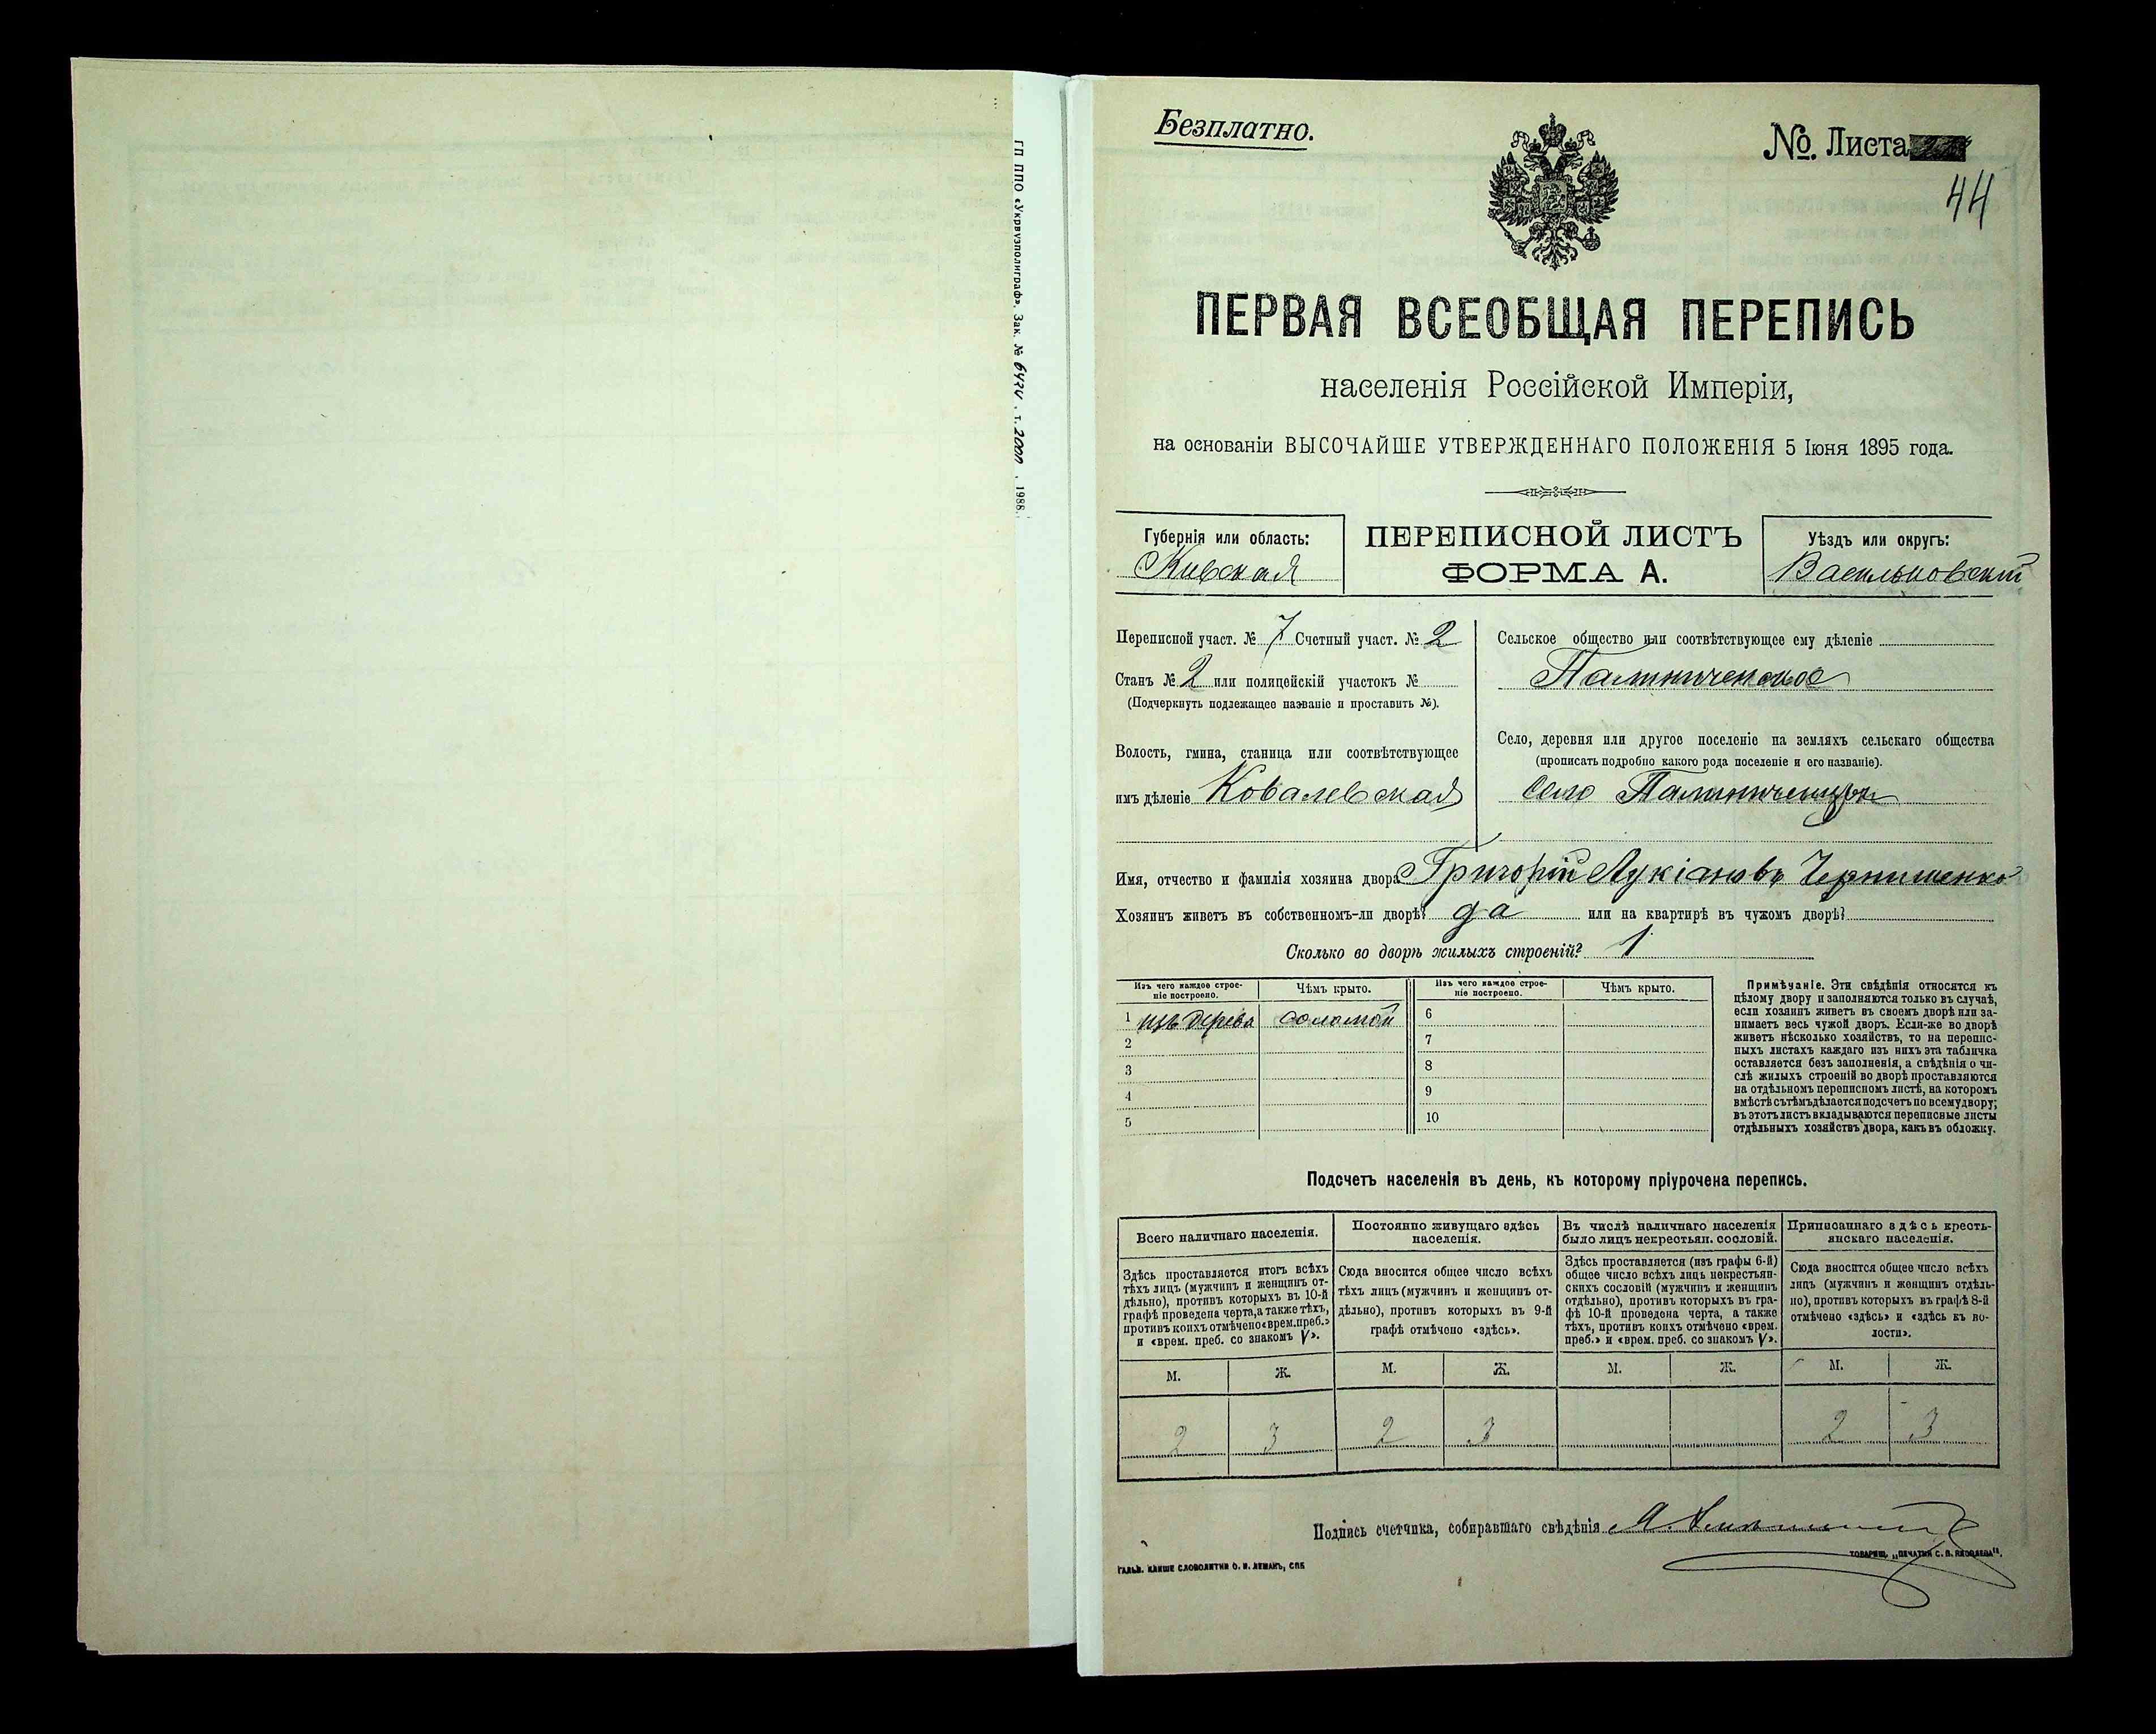 ГП ППО «Укрвузполиграф». Зак. № 6424. т. 2000. 1988.
Безплатно.
№. Листа
44
ПЕРВАЯ ВСЕОБЩАЯ ПЕРЕПИСЬ
населенія Россійской Имперіи,
на основаніи ВЫСОЧАЙШЕ УТВЕРЖДЕННАГО ПОЛОЖЕНІЯ 5 Іюня 1895 года.
Губернія или область:
Кіевская
ПЕРЕПИСНОЙ ЛИСТЪ
ФОРМА А.
Уѣздъ или округъ:
Васильковскій
Переписной участ. № 7 Счетный участ. № 2
Станъ № 2 или полицейскій участокъ №
(Подчеркнуть подлежащее названіе и проставить №).
Волость, гмина, станица или соотвѣтствующее
имъ дѣленіе Ковалевская
Сельское общество или соотвѣтствующее ему дѣленіе
Палиниченское
Село, деревня или другое поселеніе на земляхъ сельскаго общества
(прописать подробно какого рода поселеніе и его названіе).
село Палиниченцы
Имя, отчество и фамилія хозяина двора Григорій Лукіановъ Чернишенко
Хозяинъ живетъ въ собственномъ-ли дворѣ? да или на квартирѣ въ чужомъ дворѣ?
Сколько во дворѣ жилыхъ строеній? 1
Изъ чего каждое строе-
ніе построено.
Чѣмъ крыто.
Изъ чего каждое строе-
ніе построено.
Чѣмъ крыто.
1 изъ дерева соломой 6
2 7
3 8
4 9
5 10
Примѣчаніе. Эти свѣдѣнія относятся къ
цѣлому двору и заполняются только въ случаѣ,
если хозяинъ живетъ въ своемъ дворѣ или за-
нимаетъ весь чужой дворъ. Если-же во дворѣ
живетъ нѣсколько хозяйствъ, то на перепис-
ныхъ листахъ каждаго изъ нихъ эта табличка
оставляется безъ заполненія, а свѣдѣнія о чи-
слѣ жилыхъ строеній во дворѣ проставляются
на отдѣльномъ переписномъ листѣ, на которомъ
вмѣстѣ съ тѣмъ дѣлается подсчетъ по всему двору;
въ этотъ листъ вкладываются переписные листы
отдѣльныхъ хозяйствъ двора, какъ въ обложку.
Подсчетъ населенія въ день, къ которому пріурочена перепись.
Всего наличнаго населенія.
Здѣсь проставляется итогъ всѣхъ
тѣхъ лицъ (мужчинъ и женщинъ от-
дѣльно), противъ которыхъ въ 10-й
графѣ проведена черта, а также тѣхъ,
противъ коихъ отмѣчено «врем. преб.»
и «врем. преб. со знакомъ V».
Постоянно живущаго здѣсь
населенія.
Сюда вносится общее число всѣхъ
тѣхъ лицъ (мужчинъ и женщинъ от-
дѣльно), противъ которыхъ въ 9-й
графѣ отмѣчено «здѣсь».
Въ числѣ наличнаго населенія
было лицъ некрестьян. сословій.
Здѣсь проставляется (изъ графы 6-й)
общее число всѣхъ лицъ некрестьян-
скихъ сословій (мужчинъ и женщинъ
отдѣльно), противъ которыхъ въ гра-
фѣ 10-й проведена черта, а также
тѣхъ, противъ коихъ отмѣчено «врем.
преб.» и «врем. преб. со знакомъ V».
Приписаннаго здѣсь кресть-
янскаго населенія.
Сюда вносится общее число всѣхъ
лицъ (мужчинъ и женщинъ отдѣль-
но), противъ которыхъ въ графѣ 8-й
отмѣчено «здѣсь» и «здѣсь къ во-
лости».
М. Ж. М. Ж. М. Ж. М. Ж.
2 3 2 3 2 3
Подпись счетчика, собиравшаго свѣдѣнія
ГАЛЬВ. КЛИШЕ СЛОВОЛИТНИ О. И. ЛЕМАНЪ, СПБ
ТОВАРИЩ. „ПЕЧАТНЯ С. П. ЯКОВЛЕВА".